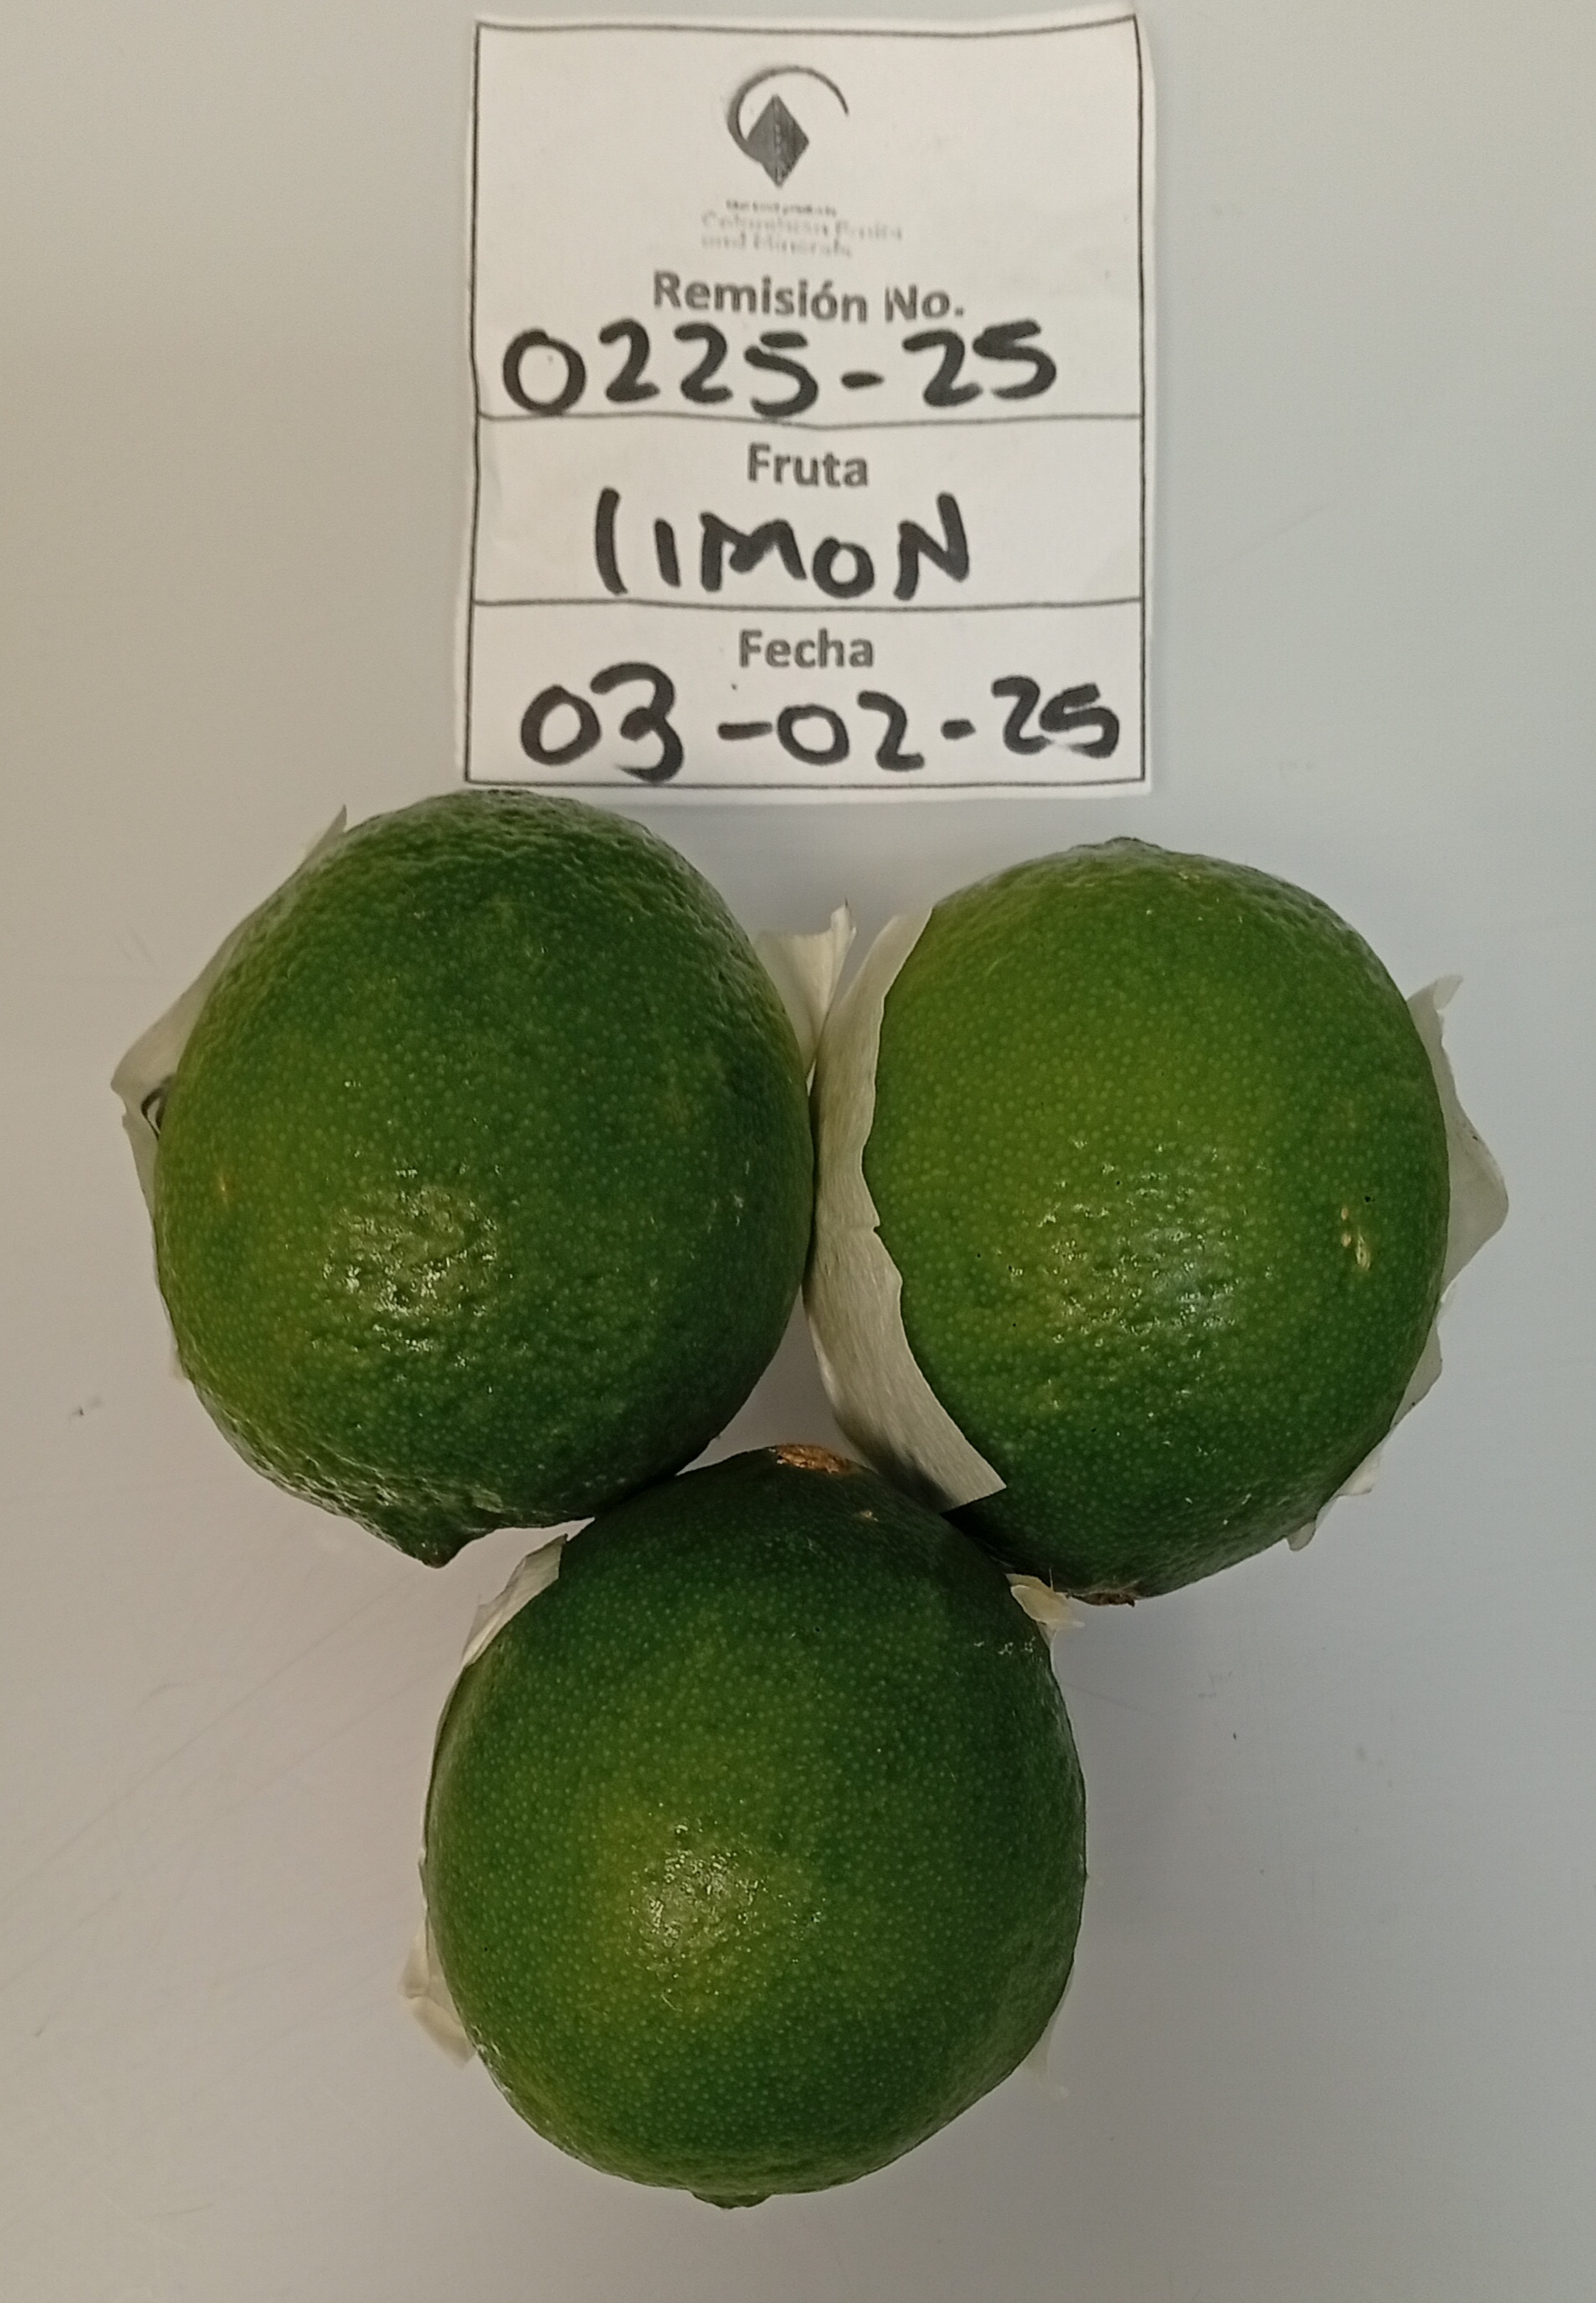 Colombian Fruits
and Minerals
Remisión No.
0225-25
Fruta
lIMON
Fecha
03-02-25